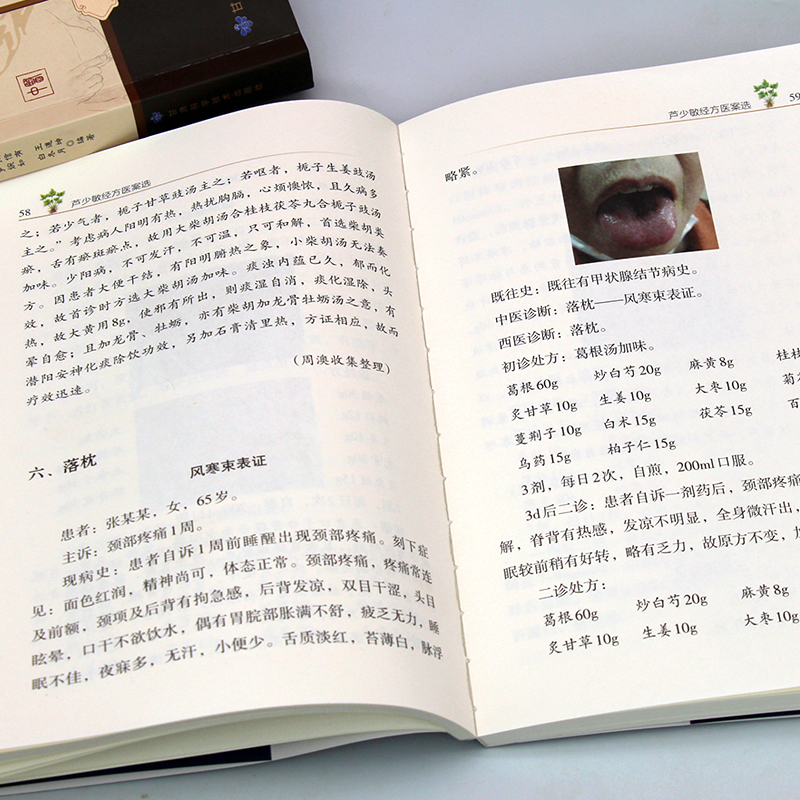 58
芦少敏经方医案选
汤主之；若呕者，栀子生姜豉汤
之；若少气者，栀子甘草豉汤
主之。”考虑病人阳明有热，热扰胸膈，心烦懊憹，且久病多
瘀，舌有瘀斑瘀点，故用大柴胡汤合桂枝茯苓丸合栀子豉汤
加味。少阳病，不可发汗，不可温，只可和解，首选柴胡类
方。因患者大便干结，有阳明腑热之象，小柴胡汤无法奏
效，故首诊时方选大柴胡汤加味。痰浊内蕴已久，郁而化
热，故大黄用8g，使邪有所出，则痰湿自消，痰化湿除，头
晕自愈；且加龙骨、牡蛎，亦有柴胡加龙骨牡蛎汤之意，有
潜阳安神化痰除饮功效，另加石膏清里热，方证相应，故而
疗效迅速。
（周澳收集整理）
六、落枕
风寒束表证
患者：张某某，女，65岁。
主诉：颈部疼痛1周。
现病史：患者自诉1周前睡醒出现颈部疼痛。刻下症
见：面色红润，精神尚可，体态正常。颈部疼痛，疼痛常连
及前额，颈项及后背有拘急感，后背发凉，双目干涩，头目
眩晕，口干不欲饮水，偶有胃脘部胀满不舒，疲乏无力，睡
眠不佳，夜寐多，无汗，小便少。舌质淡红，苔薄白，脉浮
芦少敏经方医案选
59
略紧。
既往史：既往有甲状腺结节病史。
中医诊断：落枕——风寒束表证。
西医诊断：落枕。
初诊处方：葛根汤加味。
葛根60g 炒白芍20g 麻黄8g 桂枝
炙甘草10g 生姜10g 大枣10g 菊花
蔓荆子10g 白术15g 茯苓15g 百
乌药15g 柏子仁15g
3剂，每日2次，自煎，200ml口服。
3d后二诊：患者自诉一剂药后，颈部疼痛
解，脊背有热感，发凉不明显，全身微汗出，
眠较前稍有好转，略有乏力，故原方不变，加
二诊处方：
葛根60g 炒白芍20g 麻黄8g
炙甘草10g 生姜10g 大枣10g